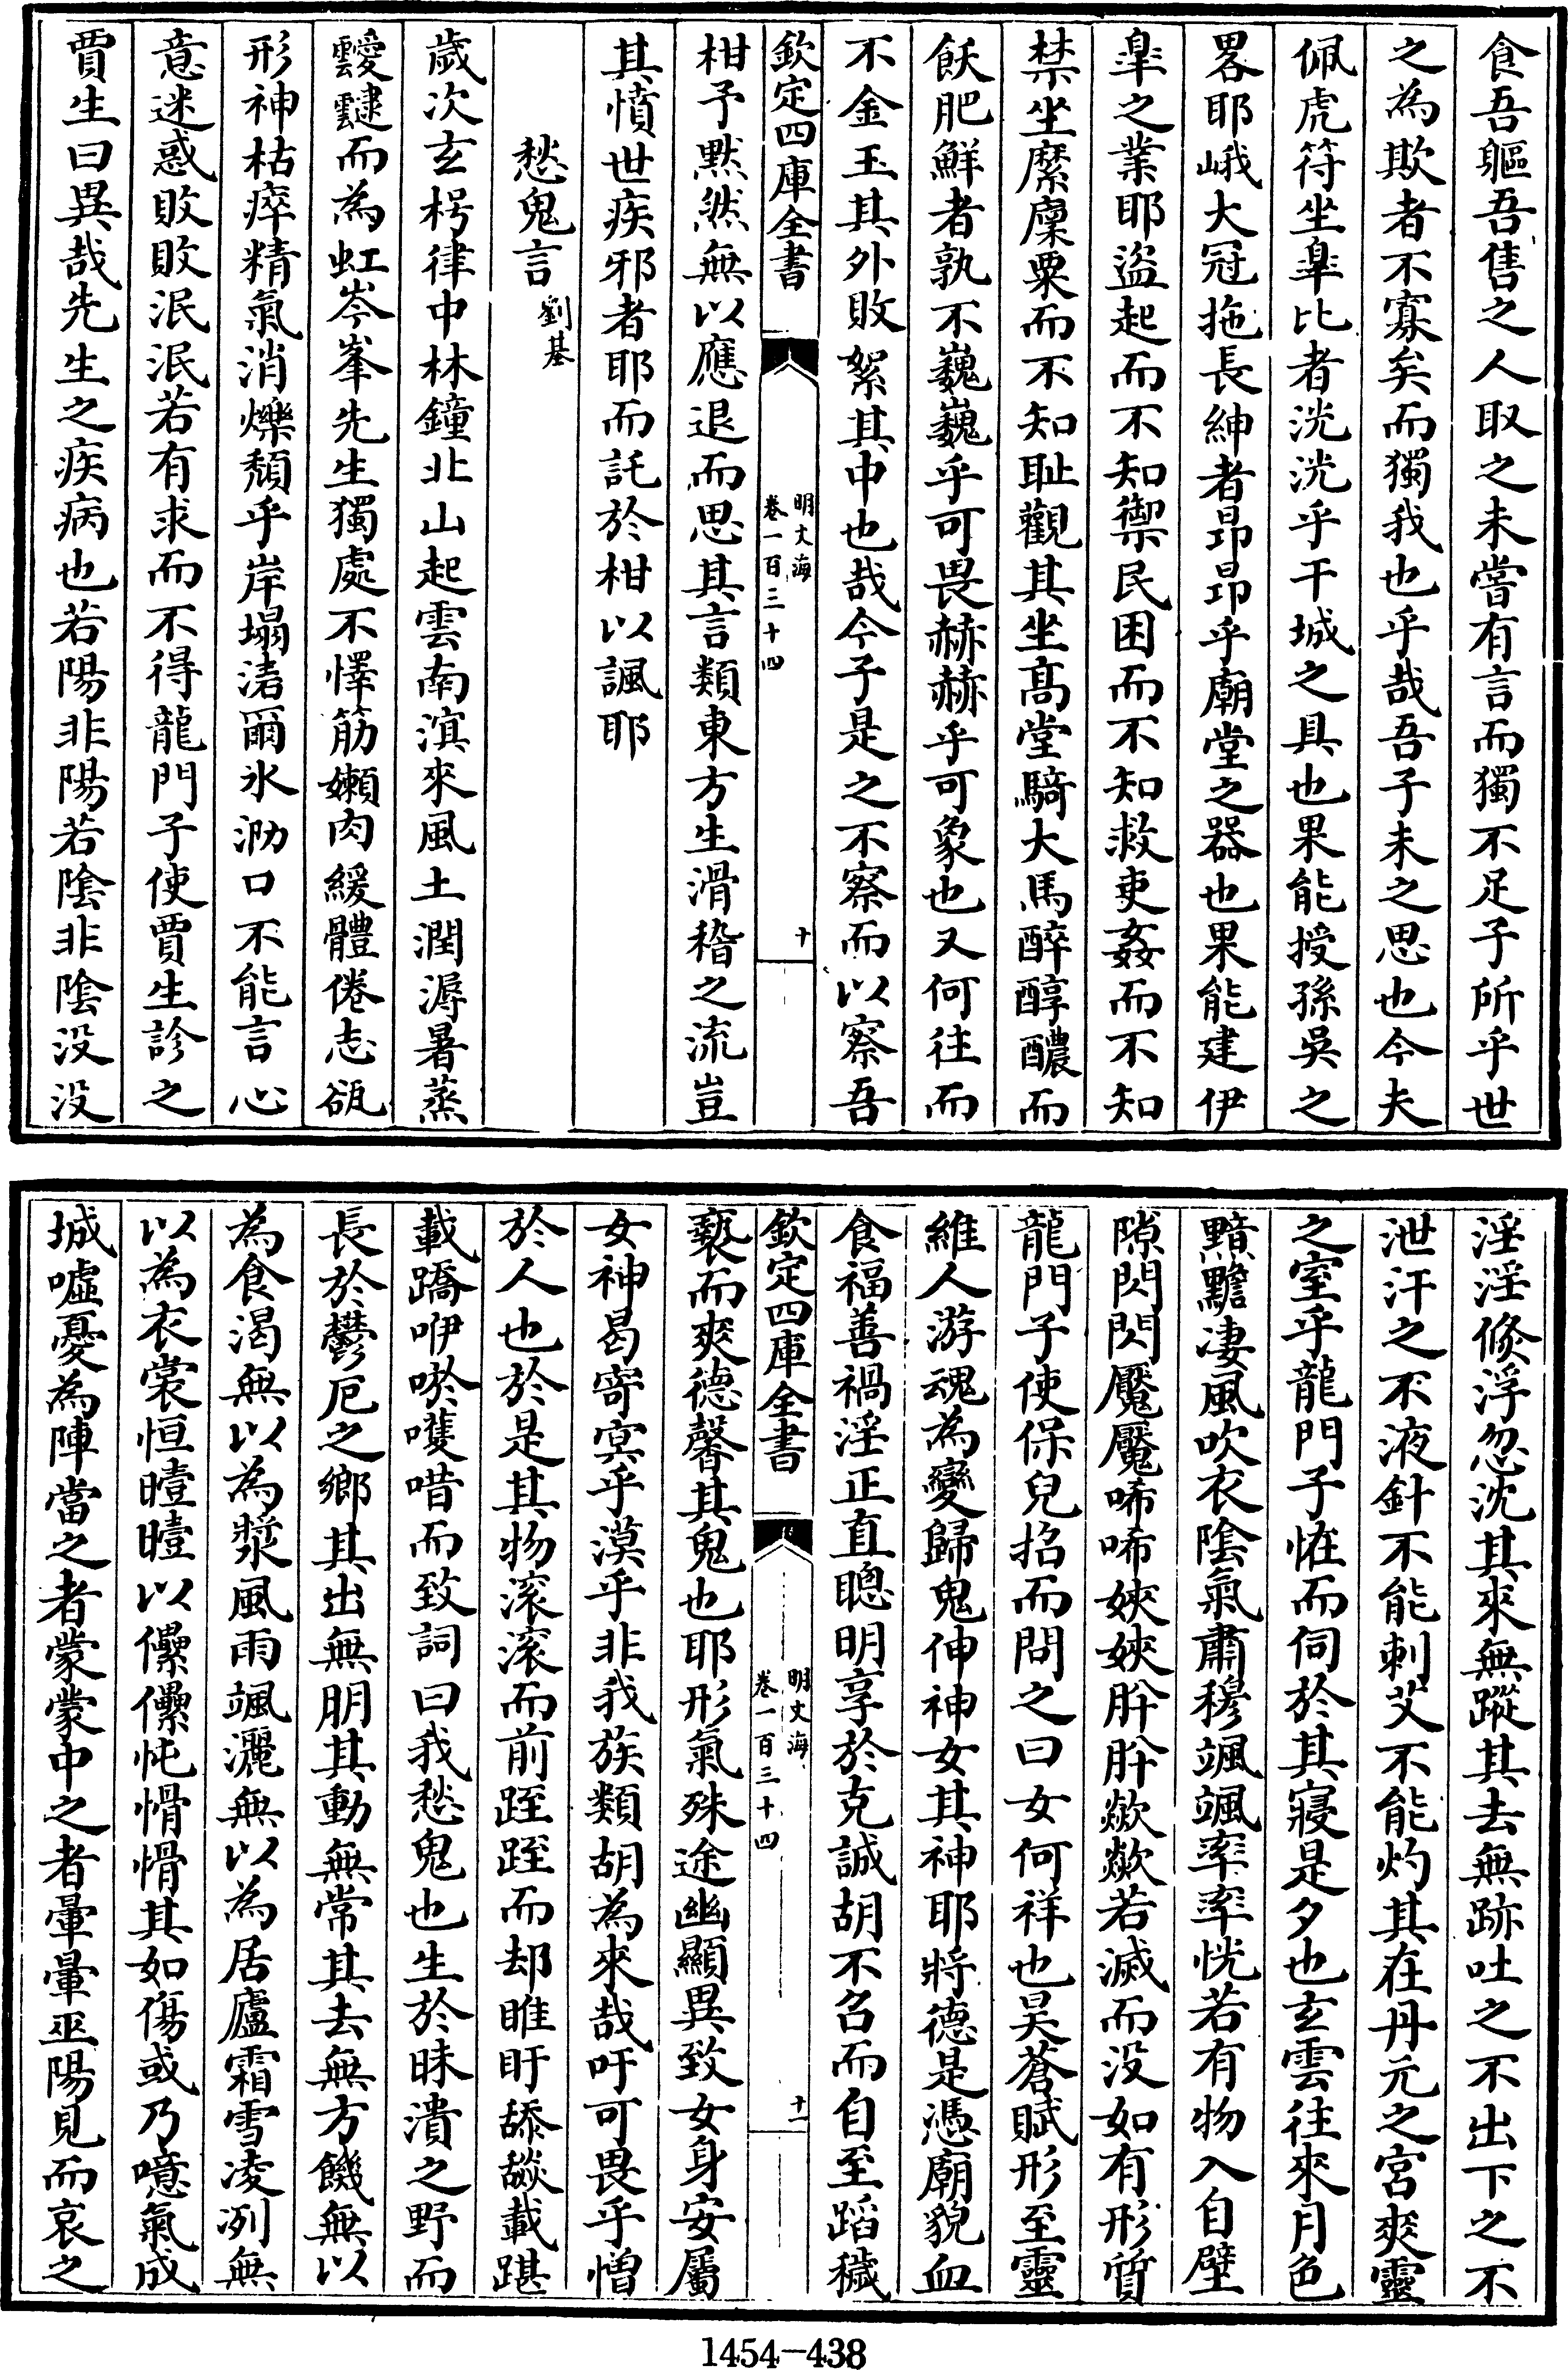 食吾軀吾售之人取之未嘗有言而獨不足子所乎世
之為欺者不寡矣而獨我也乎哉吾子未之思也今夫
佩虎符坐臯比者洸洸乎干城之具也果能授孫吳之
畧耶峨大冠拖長紳者昂昂乎廟堂之器也果能建伊
臯之業耶盜起而不知禦民困而不知救吏姦而不知
禁坐縻廩粟而不知耻觀其坐高堂騎大馬醉醇醲而
飫肥鮮者孰不巍巍乎可畏赫赫乎可象也又何往而
不金玉其外敗絮其中也哉今子是之不察而以察吾
欽定四庫全書
明文海
卷一百三十四
十
柑予默然無以應退而思其言類東方生滑稽之流豈
其憤世疾邪者耶而託於柑以諷耶
愁鬼言 劉基
歲次玄枵律中林鐘北山起雲南溟來風土潤溽暑蒸
靉靆而為虹岑峯先生獨處不懌筋嬾肉緩體倦志㼌
形神枯瘁精氣消爍頹乎岸塌涾爾氷泐口不能言心
意迷惑敗敗泯泯若有求而不得龍門子使賈生診之
賈生曰異哉先生之疾病也若陽非陽若陰非陰没没
淫淫倐浮忽沈其來無蹤其去無跡吐之不出下之不
泄汗之不液針不能刺艾不能灼其在丹元之宮爽靈
之室乎龍門子恠而伺於其寢是夕也玄雲往來月色
黯黵凄風吹衣陰氣肅穆颯颯率率恍若有物入自壁
隙閃閃魘魘唏唏㛍㛍肸肸歘歘若滅而没如有形質
龍門子使保兒招而問之曰女何祥也昊蒼賦形至靈
維人游魂為變歸鬼伸神女其神耶將德是憑廟貌血
食福善禍淫正直聰明享於克誠胡不召而自至蹈穢
欽定四庫全書
明文海
卷一百三十四
十一
褻而爽德馨其鬼也耶形氣殊途幽顯異致女身安屬
女神曷寄冥乎漠乎非我族類胡為來哉吁可畏乎憎
於人也於是其物滚滚而前踁踁而却睢盱舔舕載踑
載蹻咿唹嚄唶而致詞曰我愁鬼也生於昧潰之野而
長於鬱厄之鄉其出無朋其動無常其去無方饑無以
為食渴無以為漿風雨颯灑無以為居廬霜雪凌冽無
以為衣裳恒曀曀以儽儽忳愲愲其如傷或乃噫氣成
城噓憂為陣當之者蒙蒙中之者暈暈巫陽見而哀之
1454-438